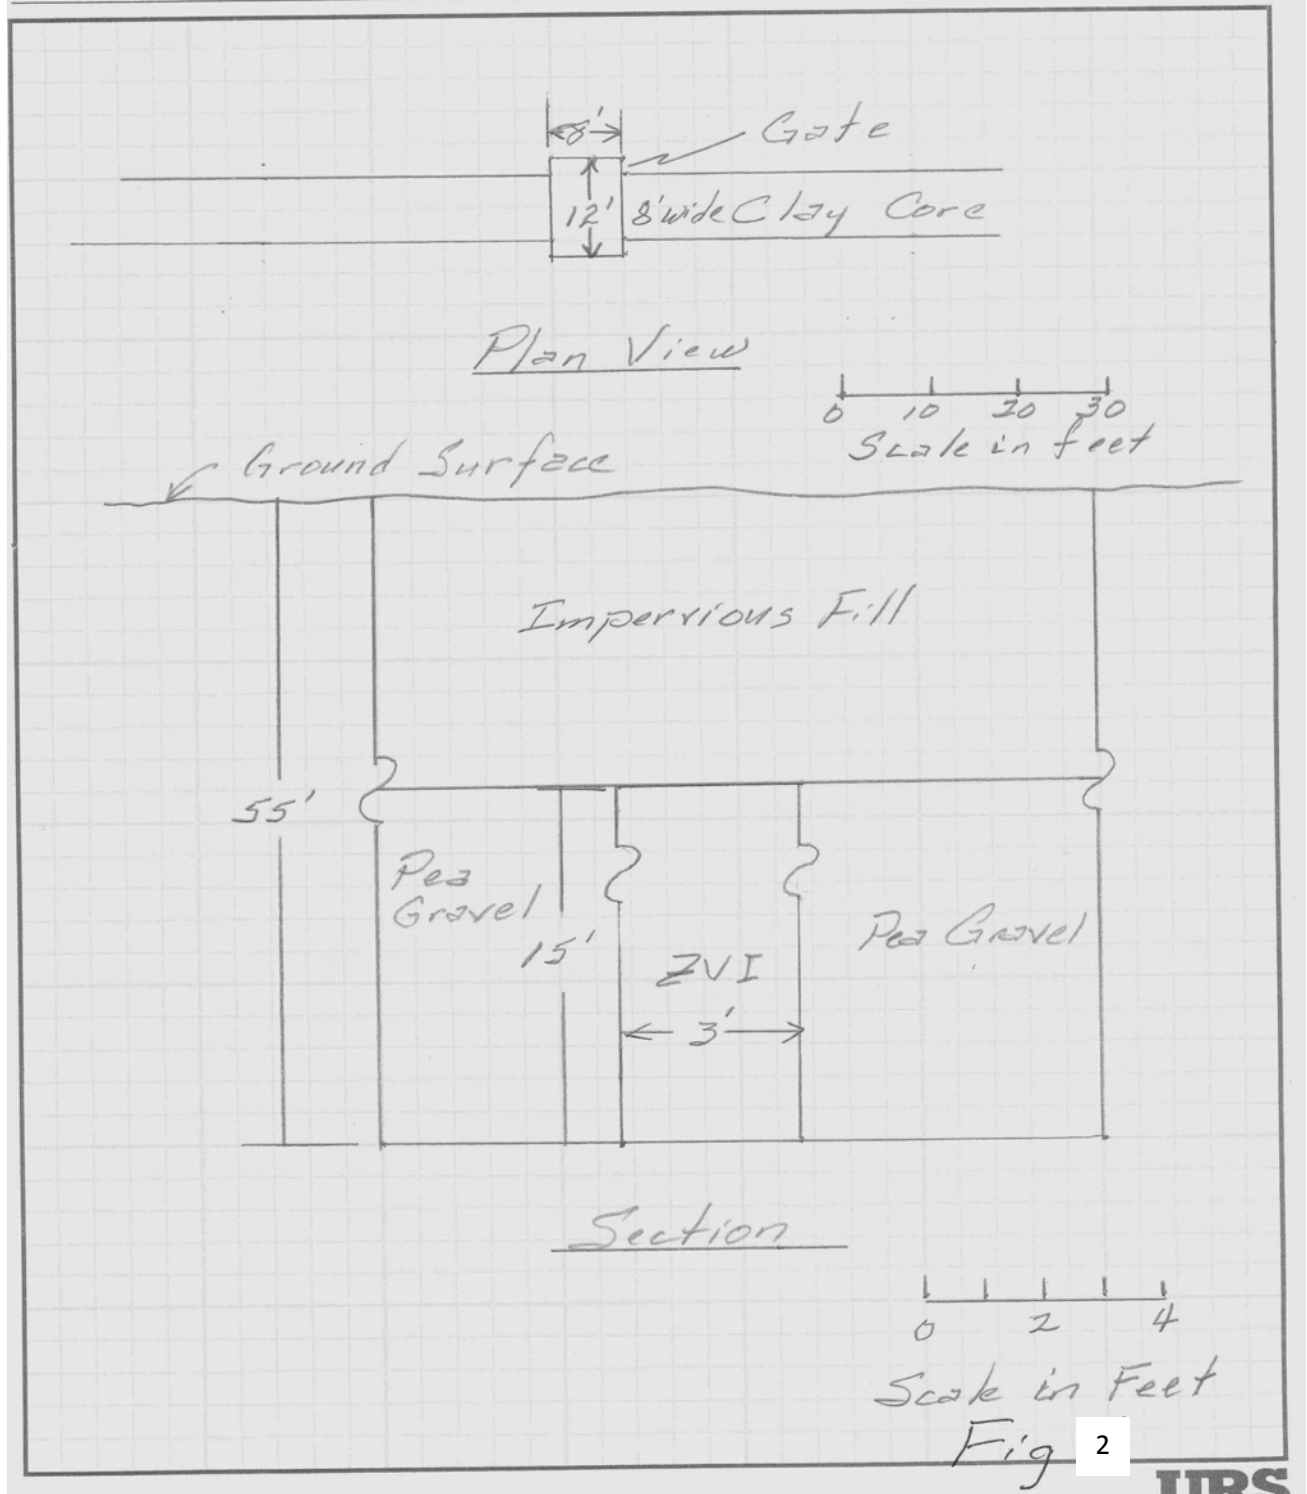 8'
Gate
12'
8' wide Clay Core
Plan View
0 10 20 30
Scale in feet
Ground Surface
Impervious Fill
55'
Pea
Gravel
15'
ZVI
Pea Gravel
3'
Section
0 2 4
Scale in Feet
Fig 2
URS